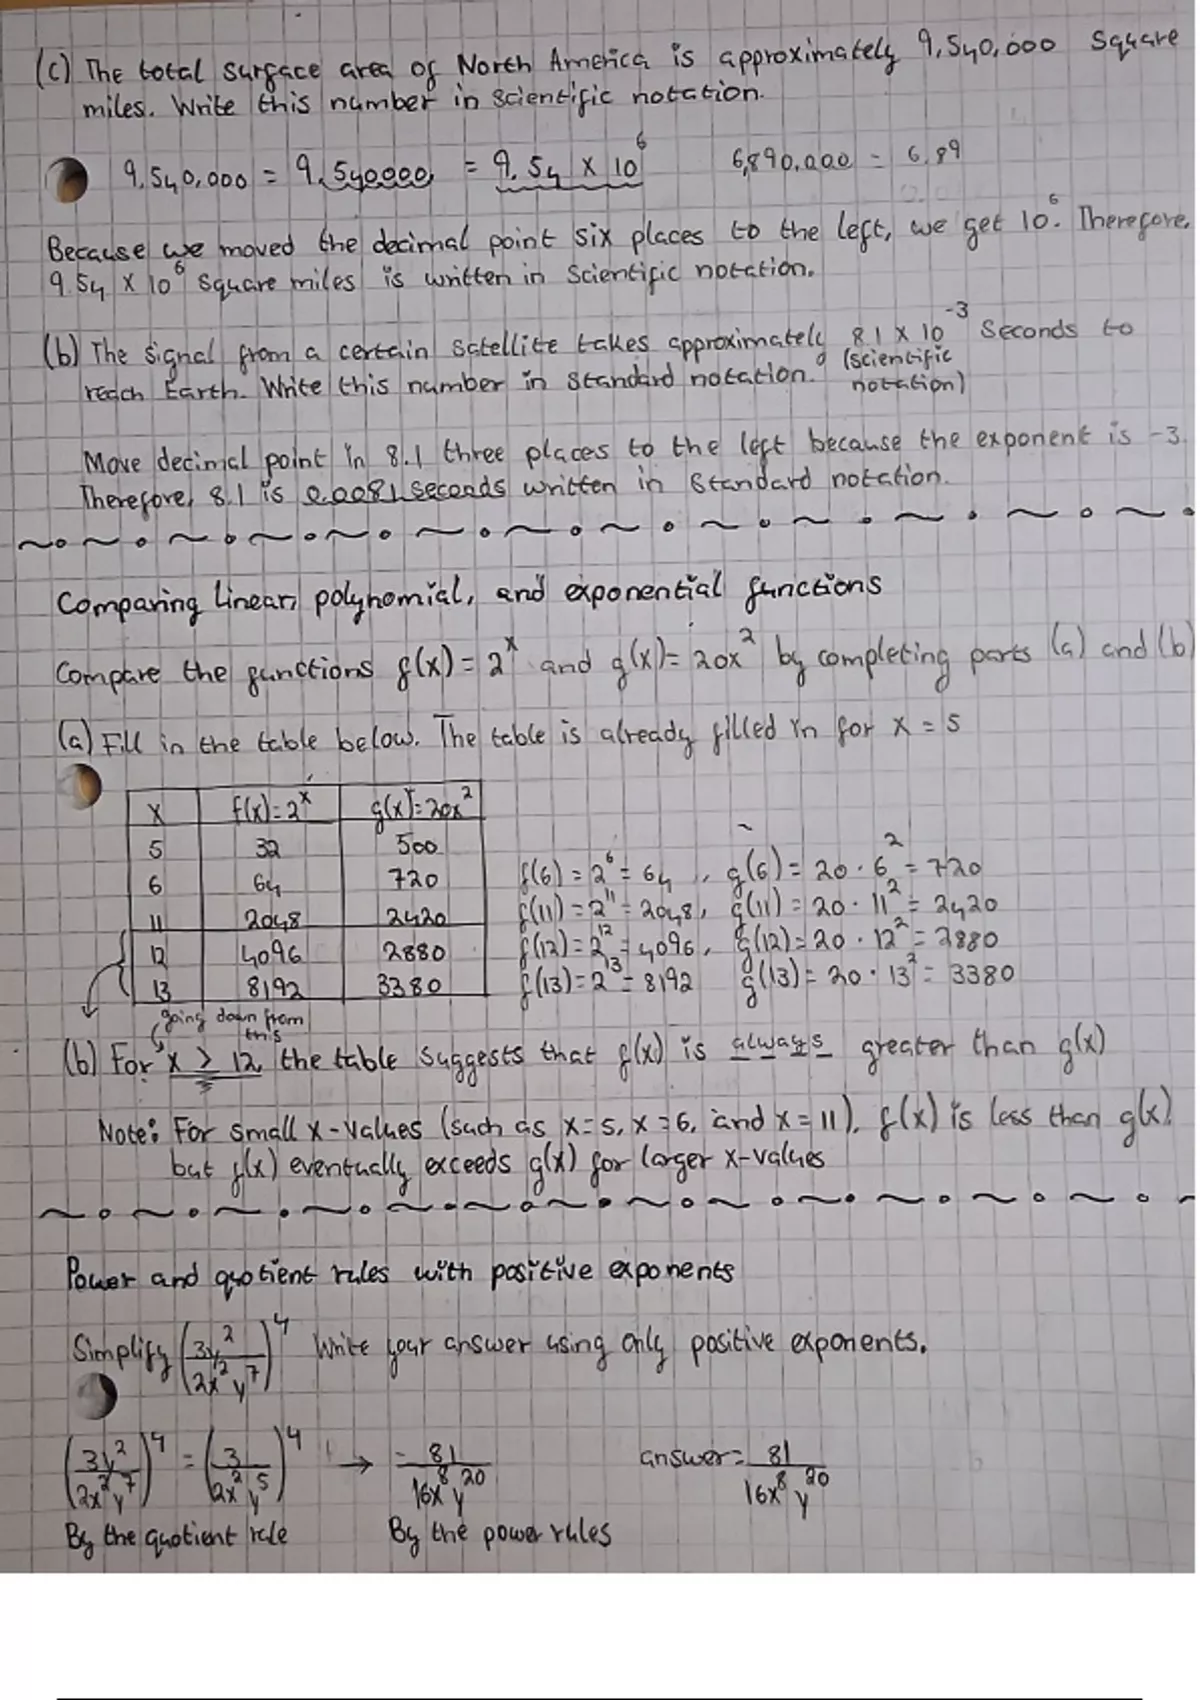 (c) The total surface area of North America is approximately 9,540,000 square
miles. Write this number in scientific notation.
9,540,000 = 9.540000 = 9.54 x 10⁶ 6,890,000 = 6.89
Because we moved the decimal point six places to the left, we get 10⁶. Therefore,
9.54 x 10⁶ square miles is written in scientific notation.
(b) The signal from a certain satellite takes approximately 8.1 x 10⁻³ seconds to
reach Earth. Write this number in standard notation. (scientific notation)
Move decimal point in 8.1 three places to the left because the exponent is -3.
Therefore, 8.1 is 0.0081 seconds written in standard notation.
Comparing linear, polynomial, and exponential functions
Compare the functions f(x) = 2ˣ and g(x) = 20x² by completing parts (a) and (b)
(a) Fill in the table below. The table is already filled in for x = 5
x f(x) = 2ˣ g(x) = 20x²
5 32 500
6 64 720 f(6) = 2⁶ = 64, g(6) = 20 · 6² = 720
11 2048 2420 f(11) = 2¹¹ = 2048, g(11) = 20 · 11² = 2420
12 4096 2880 f(12) = 2¹² = 4096, g(12) = 20 · 12² = 2880
13 8192 3380 f(13) = 2¹³ = 8192 g(13) = 20 · 13² = 3380
going down from
this
(b) For x ≥ 12, the table suggests that f(x) is always greater than g(x)
Note: For small x-values (such as x=5, x=6, and x=11), f(x) is less than g(x),
but f(x) eventually exceeds g(x) for larger x-values
Power and quotient rules with positive exponents
Simplify (3y²/2x²y⁷)⁴ Write your answer using only positive exponents.
(3y²/2x²y⁷)⁴ = (3/2x²y⁵)⁴ → = 81/16x⁸y²⁰ answer = 81/16x⁸y²⁰
By the quotient rule By the power rules